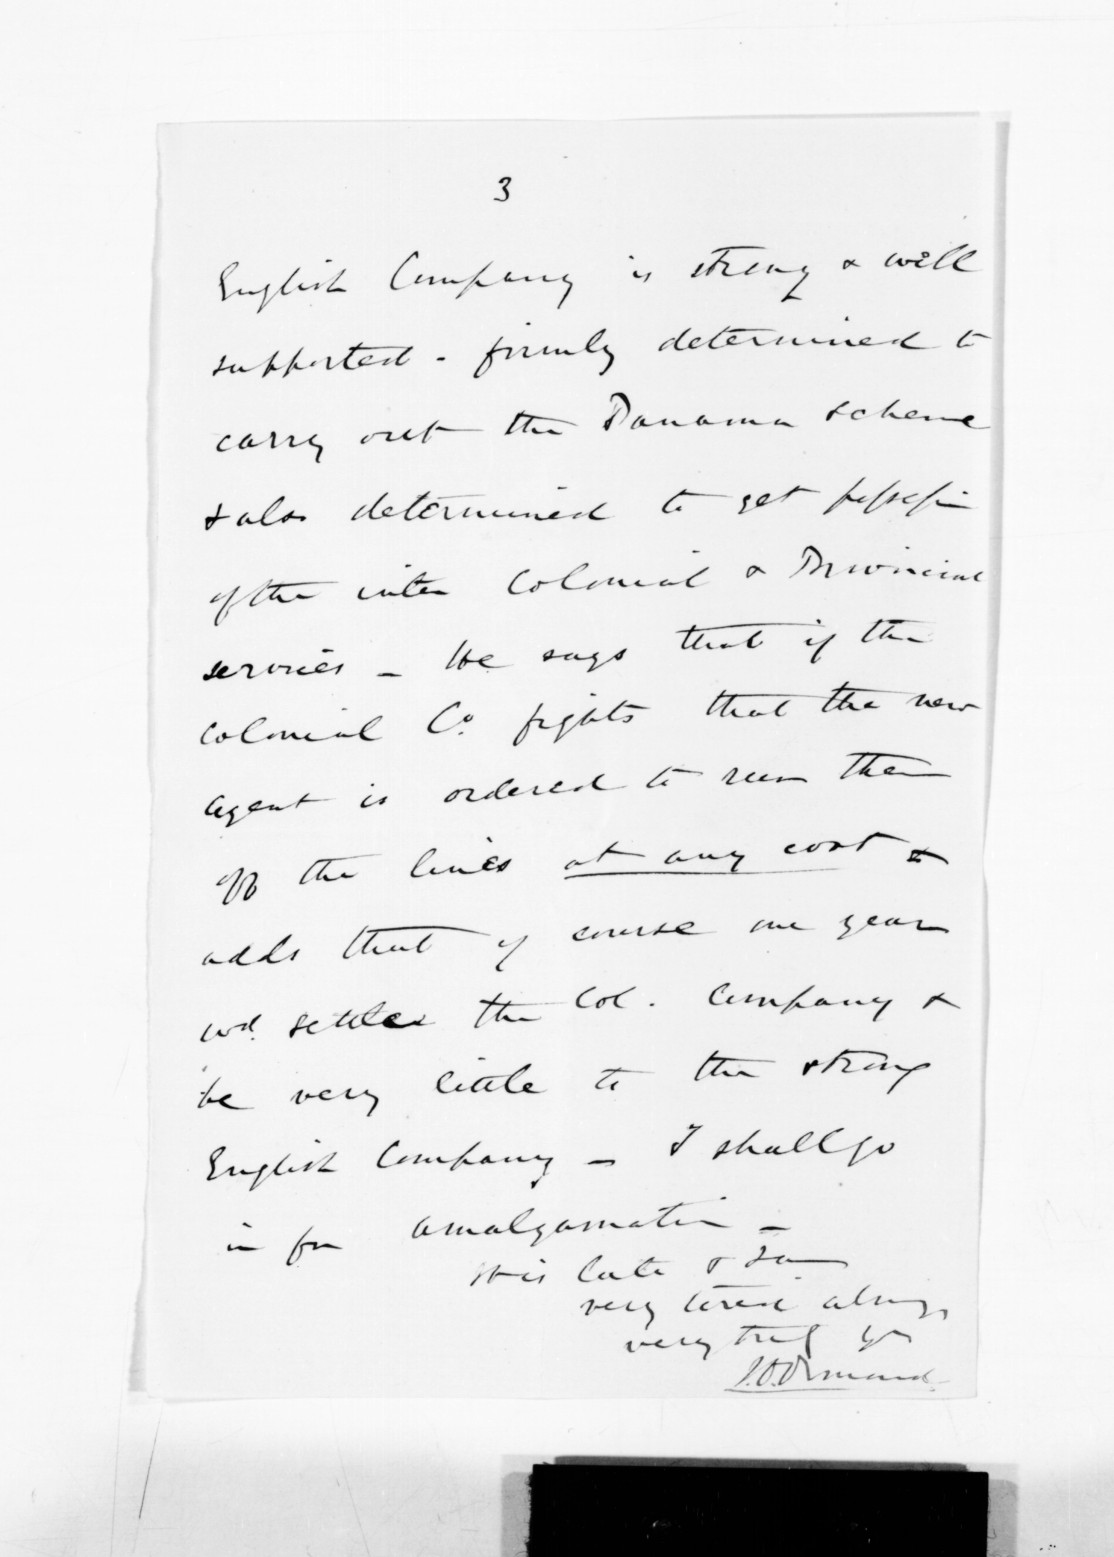 3
English Company is strong & well
supported - firmly determined to
carry out the Panama scheme
& also determined to get possession
of the inter Colonial & Provincial
services - He says that if the
Colonial Co. fights that the new
agent is ordered to run them
off the lines at any cost &
adds that of course one year
wd. settle the Col. Company &
be very little to the strong
English Company - I shall go
in for amalgamation -
It is late & I am
very tired always
very truly yrs
J.D. Ormond